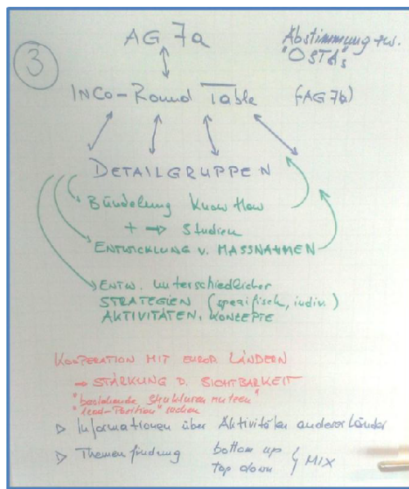 3
AG 7a
Abstimmung zw.
"OSTAs
INCO-Round Table (-AG 7b)
DETAILGRUPPEN
Bündelung Know How
+ → Studien
ENTWICKLUNG V. MASSNAHMEN
ENTW. unterschiedlicher
STRATEGIEN (spezifisch, indiv.)
AKTIVITÄTEN, KONZEPTE
KOOPERATION MIT EUROP. LÄNDERN
→ STÄRKUNG D. SICHTBARKEIT
"bestehende Strukturen nutzen"
"Lead-Position"
▷ Informationen über Aktivitäten anderer Länder
▷ Themenfindung bottom up
top down } MIX